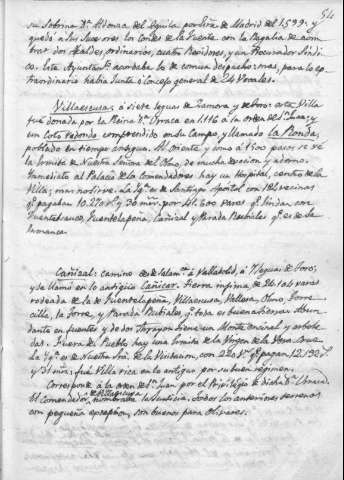 54
su Sobrina Dª Aldonza del Aguila por Esna de Madrid del 1599. y
quedó a sus sucesores los Condes de la Fuente con la Regalía de nom-
brar dos Alcaldes, ordinarios, cuatro Regidores, y un Procurador Síndi-
co. Este Ayuntamto acordaba lo de comun despacho; mas, para lo ex-
traordinario había Junta ó Concejo general de 24 Vocales.
Villaescusa: á siete leguas de Zamora y de Toro: esta Villa
fue donada por la Reina Dª Urraca en 1116 á la orden de Sn Juan; y
un coto redondo comprendido en su Campo, y llamado la Ronda,
poblado en tiempo antiguo. Al Oriente y como á 1500 pasos se ve
la hermita de Nuestra Señora del Olmo, de mucha devocion y adorno.
Inmediato al Palacio de la Comendadores hay un Hospital, centro de la
Villa; mas no sirve. La Igª es de Santiago Apostol con 184 vecinos
qe pagaban 10.270 rs y 30 mrs. por
Fuentelapeña, Cañizal y Parada Rubiales qe es de Sa-
lamanca.
Cañizal: camino de Salamca á Valladolid, á 7 leguas de Toro;
y se llamó en lo antiguo Cañizar. Tierra infima, de
rodeada de la de Fuentelapeña, Villaescusa, Vallesa, Olmo, Torre-
cilla, la Torre, y Parada Rubiales, qe toda es buena tierra. Abun-
dante en fuentes y de dos Torreones tiene un Monte encinal y arbole-
das. Fuera del Pueblo hay una hermita de la Virgen de la Vera Cruz
La Igª es de Nuestra Sra de la Visitacion, con 220 vs qe pagan 12.132 rs
y 31 mrs; fué Villa rica en lo antiguo por su buen régimen.
Corresponde á la orden de Sn Juan por el Privilegio de dicha Dª Urraca.
El Comendador de Villaescusa nombraba la Justicia. Todos los anteriores terrenos
con pequeña excepcion, son buenos para Olivares.